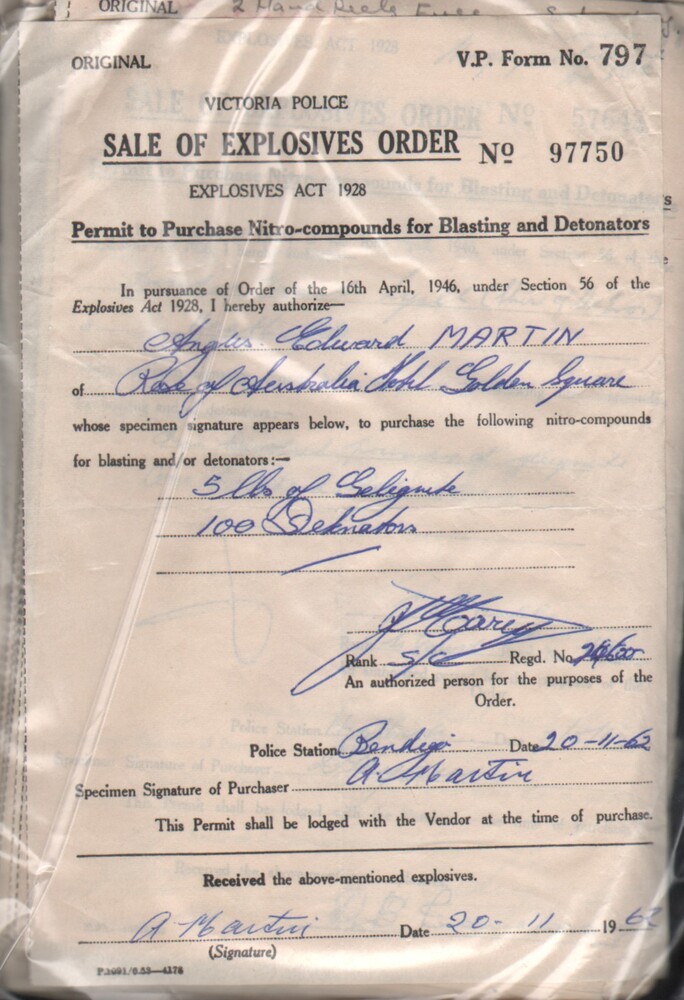 ORIGINAL 2 Hand
ORIGINAL V.P. Form No. 797
VICTORIA POLICE
SALE OF EXPLOSIVES ORDER Nº 97750
EXPLOSIVES ACT 1928
Permit to Purchase Nitro-compounds for Blasting and Detonators
In pursuance of Order of the 16th April, 1946, under Section 56 of the
Explosives Act 1928, I hereby authorize—
Angus Edward MARTIN
of Rose of Australia Hotel Golden Square
whose specimen signature appears below, to purchase the following nitro-compounds
for blasting and/or detonators:—
5 lbs of Gelignite
100 Detonators
Rank S/C Regd. No.
An authorized person for the purposes of the
Order.
Police Station Bendigo Date 20-11-62
Specimen Signature of Purchaser A Martin
This Permit shall be lodged with the Vendor at the time of purchase.
Received the above-mentioned explosives.
A Martin Date 20-11 1962
(Signature)
P.3091/6.53—4176